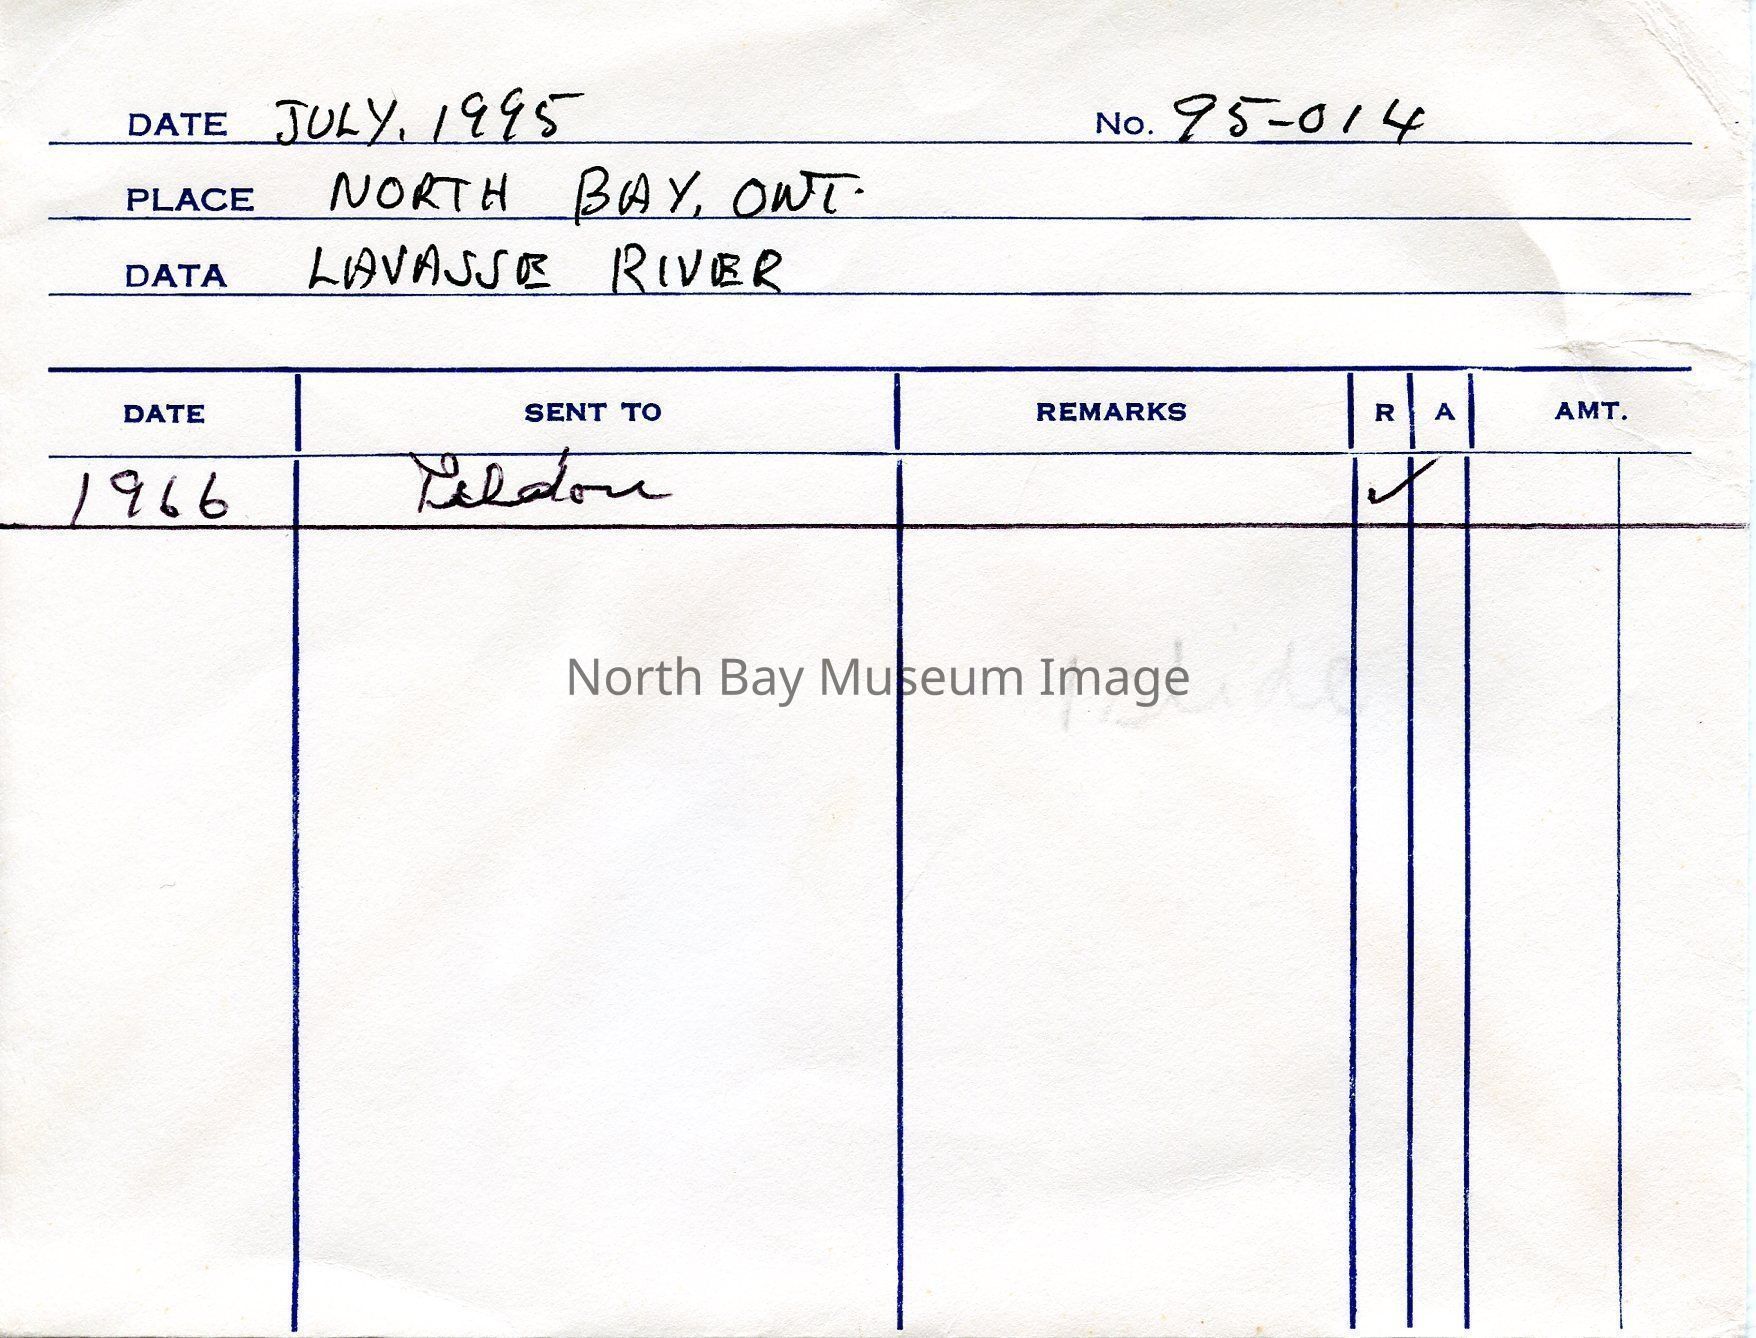 DATE JULY, 1995 No. 95-014
PLACE NORTH BAY, ONT.
DATA LAVASSE RIVER
DATE SENT TO REMARKS R A AMT.
1966 ✓
North Bay Museum Image